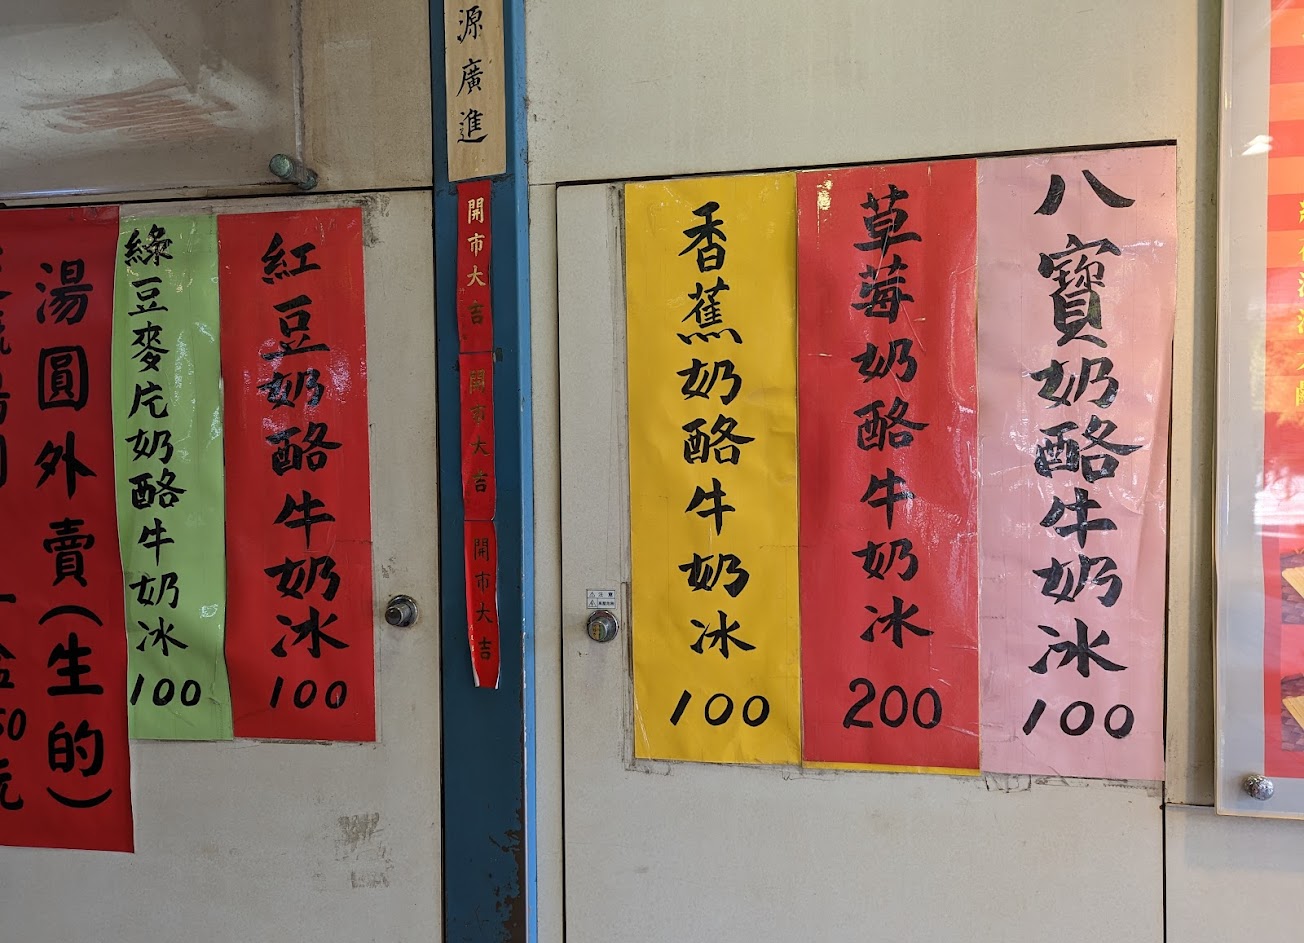 八寶奶酪牛奶冰
100
草莓奶酪牛奶冰
200
香蕉奶酪牛奶冰
100
源廣進
開市大吉
開市大吉
開市大吉
紅豆奶酪牛奶冰
100
綠豆麥片奶酪牛奶冰
100
湯圓外賣(生的)